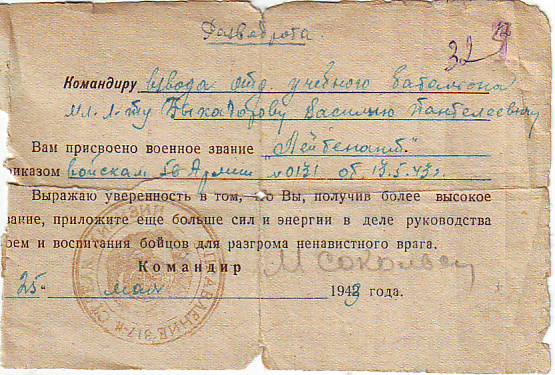 Разведрота
32
Командиру взвода отд. учебного батальона
мл. л-ту Быкадорову Василию Пантелеевичу
Вам присвоено военное звание „Лейтенант"
риказом войскам 56 Армии № 0131 от 13.5.43г.
Выражаю уверенность в том, что Вы, получив более высокое
вание, приложите еще больше сил и энергии в деле руководства
оем и воспитания бойцов для разгрома ненавистного врага.
Командир
25 мая 1943 года.
УПРАВЛЕНИЕ 317-й СТРЕЛК ДИВИЗИИ